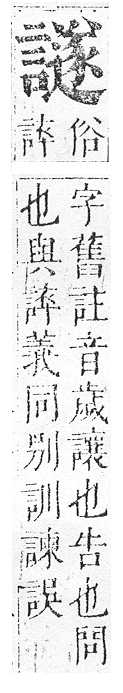 譢
俗
誶
字舊註音歲讓也告也問
也與誶義同別訓諫誤